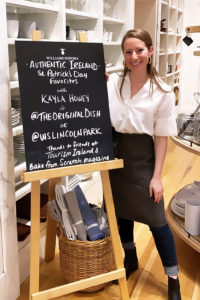 WILLIAMS-SONOMA
AUTHENTIC IRELAND
St Patrick's Day
Favorites
with
KAYLA HONEY
of
@THEORIGINALDISH
at
@WSLINCOLNPARK
Thanks to friends at
Tourism Ireland &
Bake from Scratch magazine